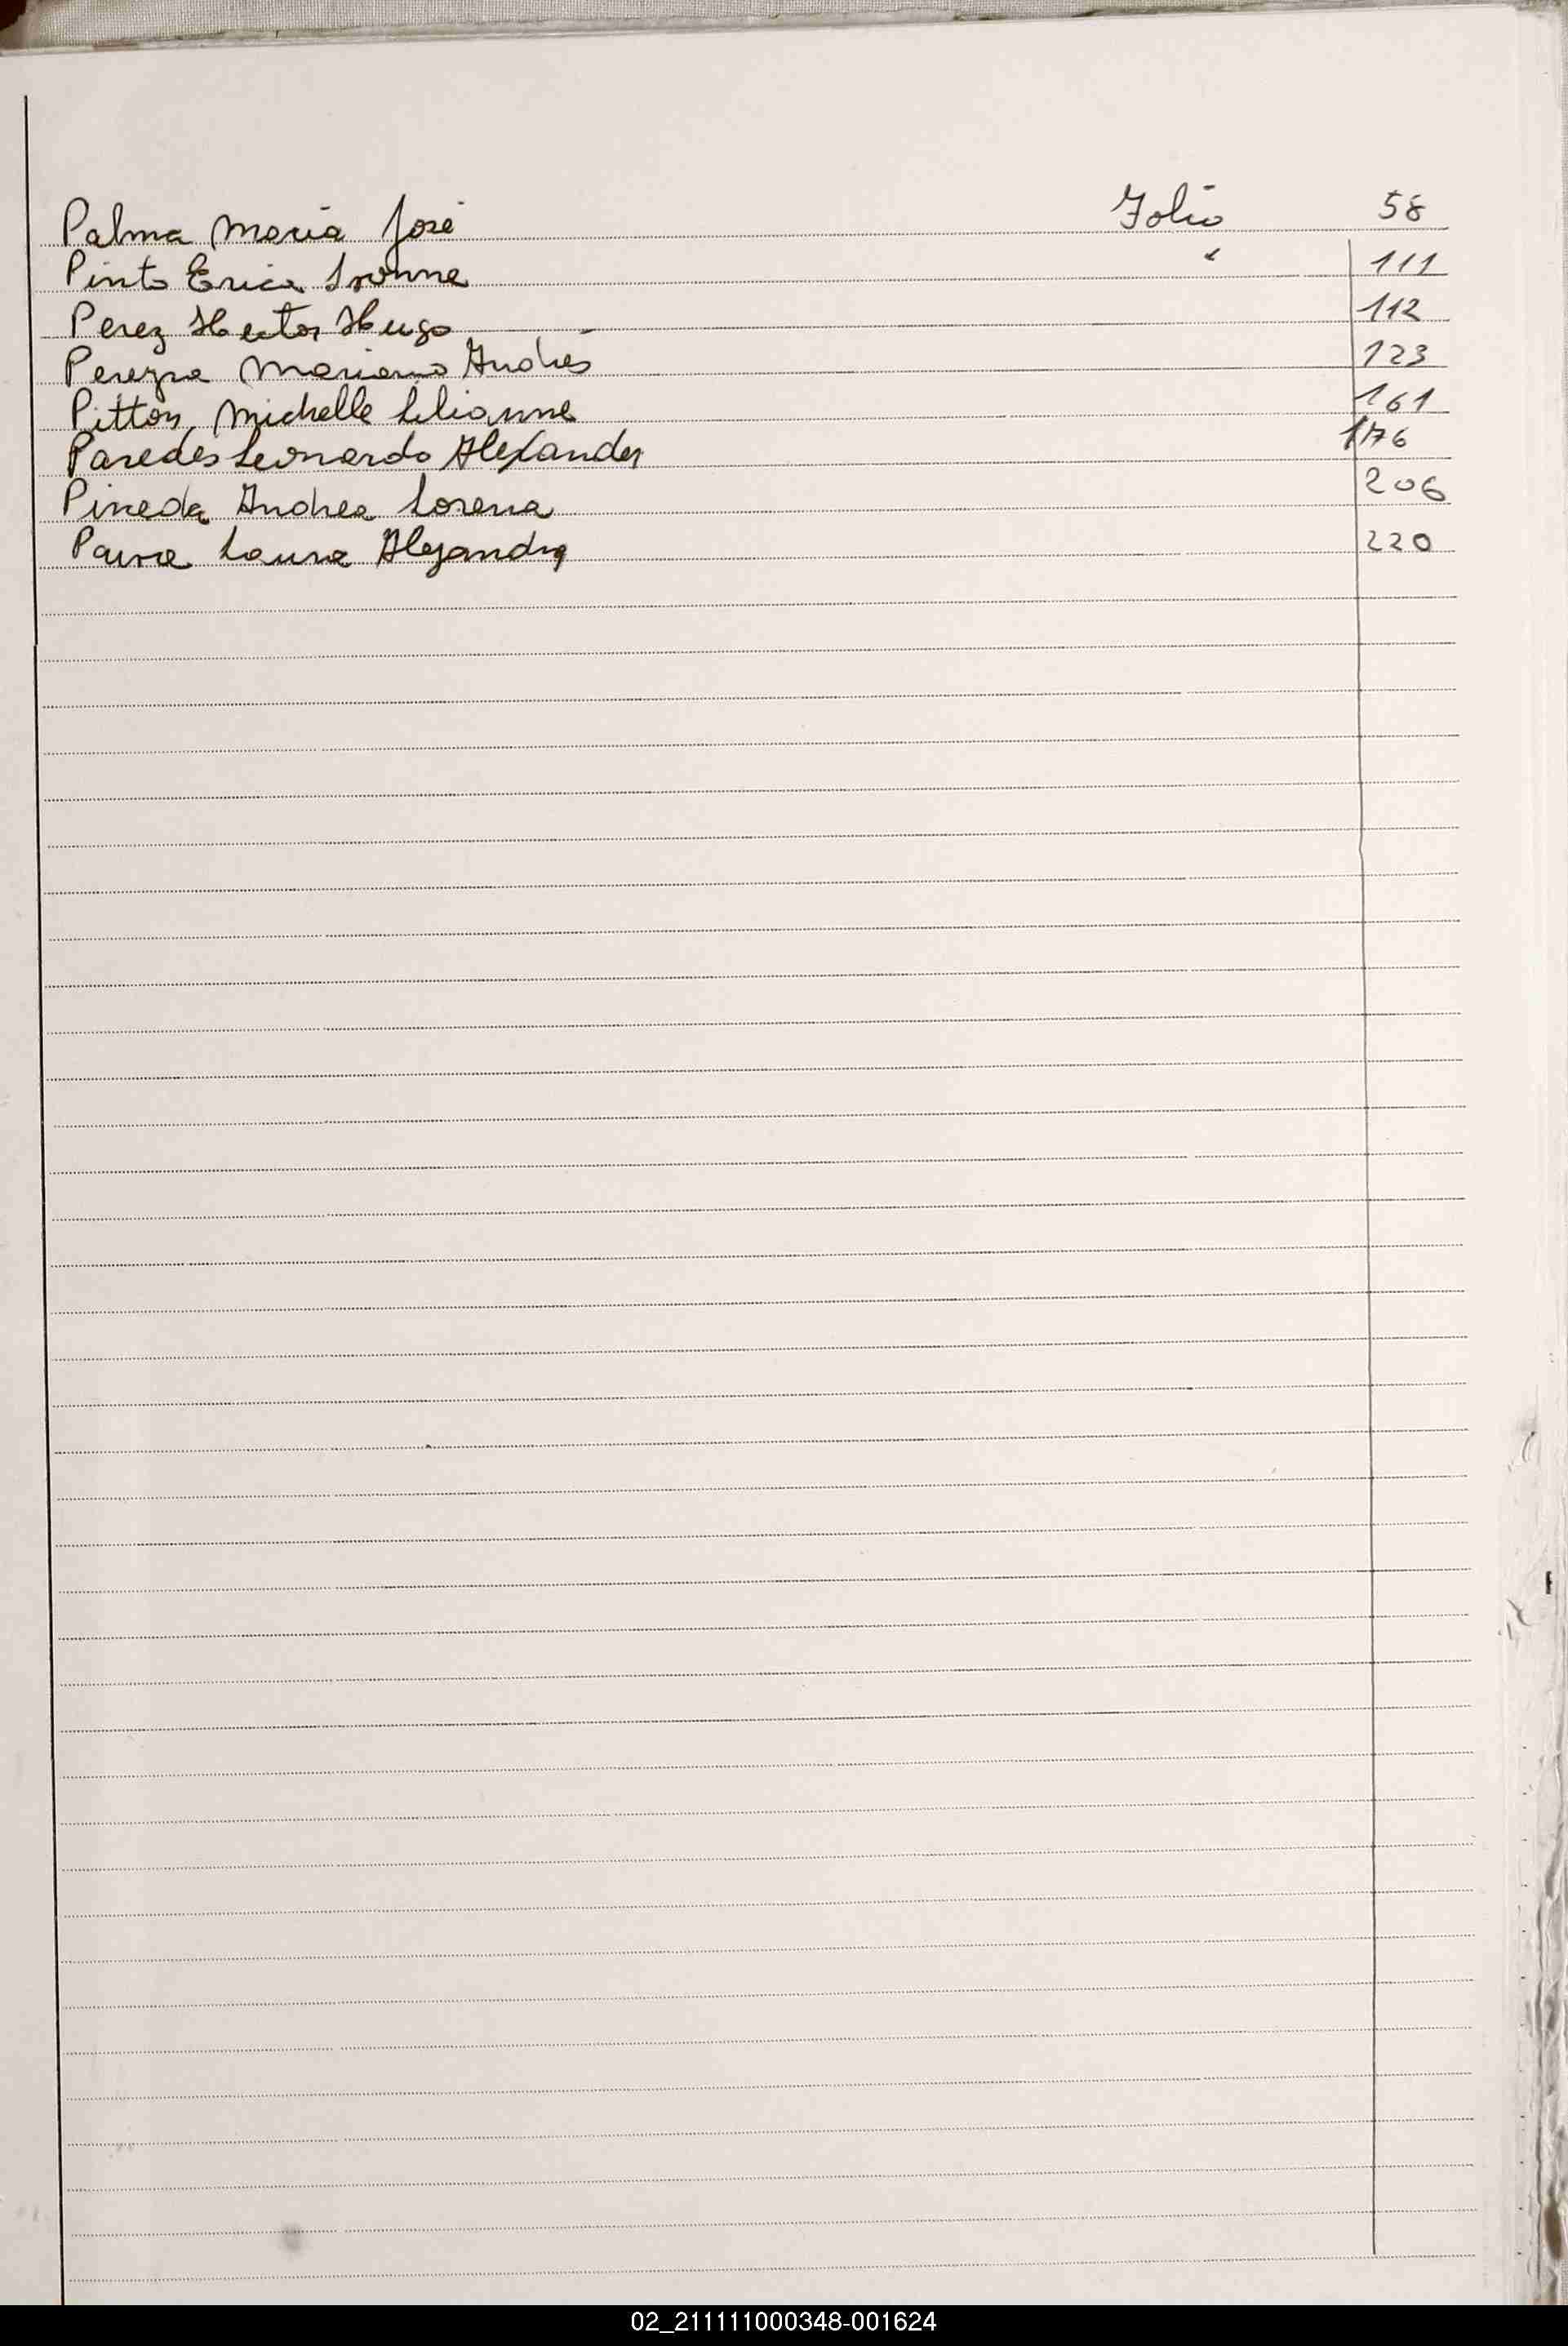 Palma Maria José Folio 58
Pinto Erica Ivonne " 111
Perez Hector Hugo 112
Pereyra Mariano Andrés 123
Pitton, Michelle Lilianne 161
Paredes Leonardo Alexander 176
Pineda Andrea Lorena 206
Laura Alejandra 220
02_211111000348-001624